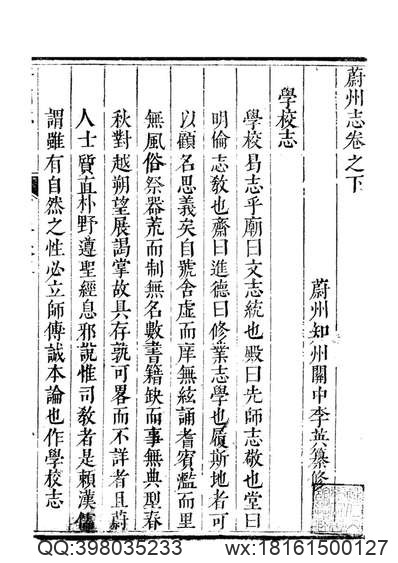 蔚州志卷之下
蔚州知州關中李英纂修
學校志
學校曷志乎廟曰文志統也殿曰先師志敬也堂曰
明倫志教也齋曰進德曰修業志學也履斯地者可
以顧名思義矣自號舍虛而庠無絃誦耆賓濫而里
無風俗祭器荒而制無名數書籍缺而事無典型春
秋對越朔望展謁掌故具存孰可畧而不詳者且蔚
人士質直朴野遵聖經息邪說惟司教者是賴漢儒
謂雖有自然之性必立師傅誠本論也作學校志
QQ:398035233
wx:18161500127